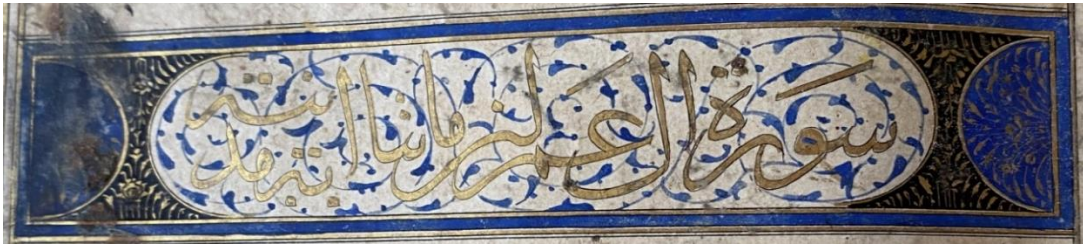 سورة ال عمرن مائتا اية مدنية